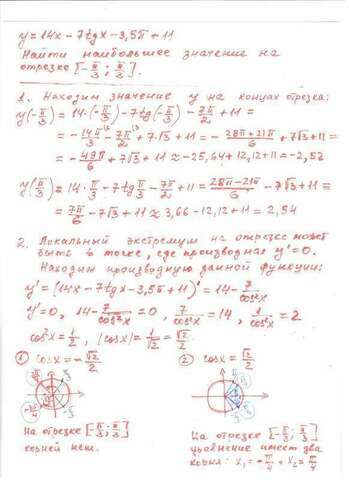 y=14x-7tgx-3,5π+11
Найти наибольшее значение на
отрезке [-π/3; π/3].
1. Находим значение y на концах отрезка:
y(-π/3)=14·(-π/3)-7tg(-π/3)-7π/2+11=
=-14π/3-7π/2+7·√3+11=-(28π+21π)/6+7√3+11=
=-49π/6+7√3+11≈-25,64+12,12+11=-2,52
y(π/3)=14·π/3-7tgπ/3-7π/2+11=(28π-21π)/6-7√3+11=
=7π/6-7√3+11≈3,66-12,12+11=2,54
2. Локальный экстремум на отрезке может
быть в точке, где производная y'=0.
Находим производную данной функции:
y'=(14x-7tgx-3,5π+11)'=14-7/cos²x
y'=0, 14-7/cos²x=0, 7/cos²x=14, 1/cos²x=2
cos²x=1/2, |cosx|=1/√2=√2/2.
① cosx=-√2/2
② cosx=√2/2
На отрезке [-π/3; π/3]
корней нет.
На отрезке [-π/3; π/3]
уравнение имеет два
корня: x₁=-π/4 и x₂=π/4